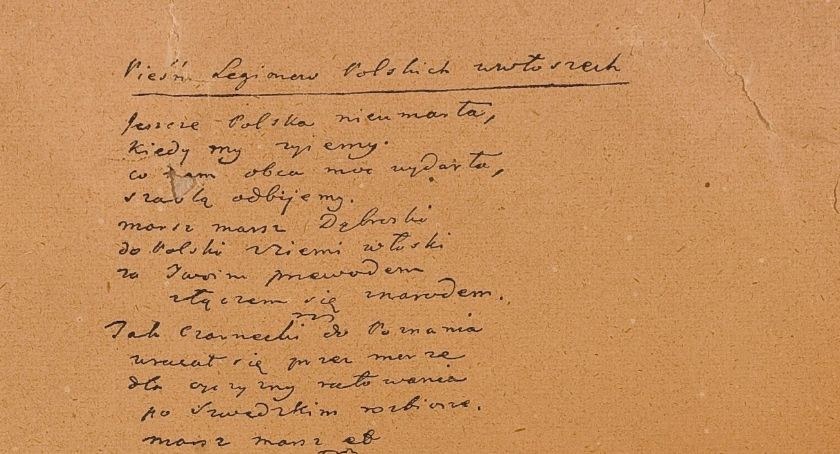 Pieśń Legionow Polskich wewłoszech
Jeszcze Polska nieumarła,
kiedy my zyiemy.
co nam obca moc wydarła,
szablą odbijemy.
marsz marsz Dąbroski
do Polski zziemi włoski
za Twoim przewodem
złączem się znarodem.
Jak Czarnecki do Poznania
wracał się przez morze
dla oyczyzny ratowania
po Szwedzkim rozbiorze.
marsz marsz etc